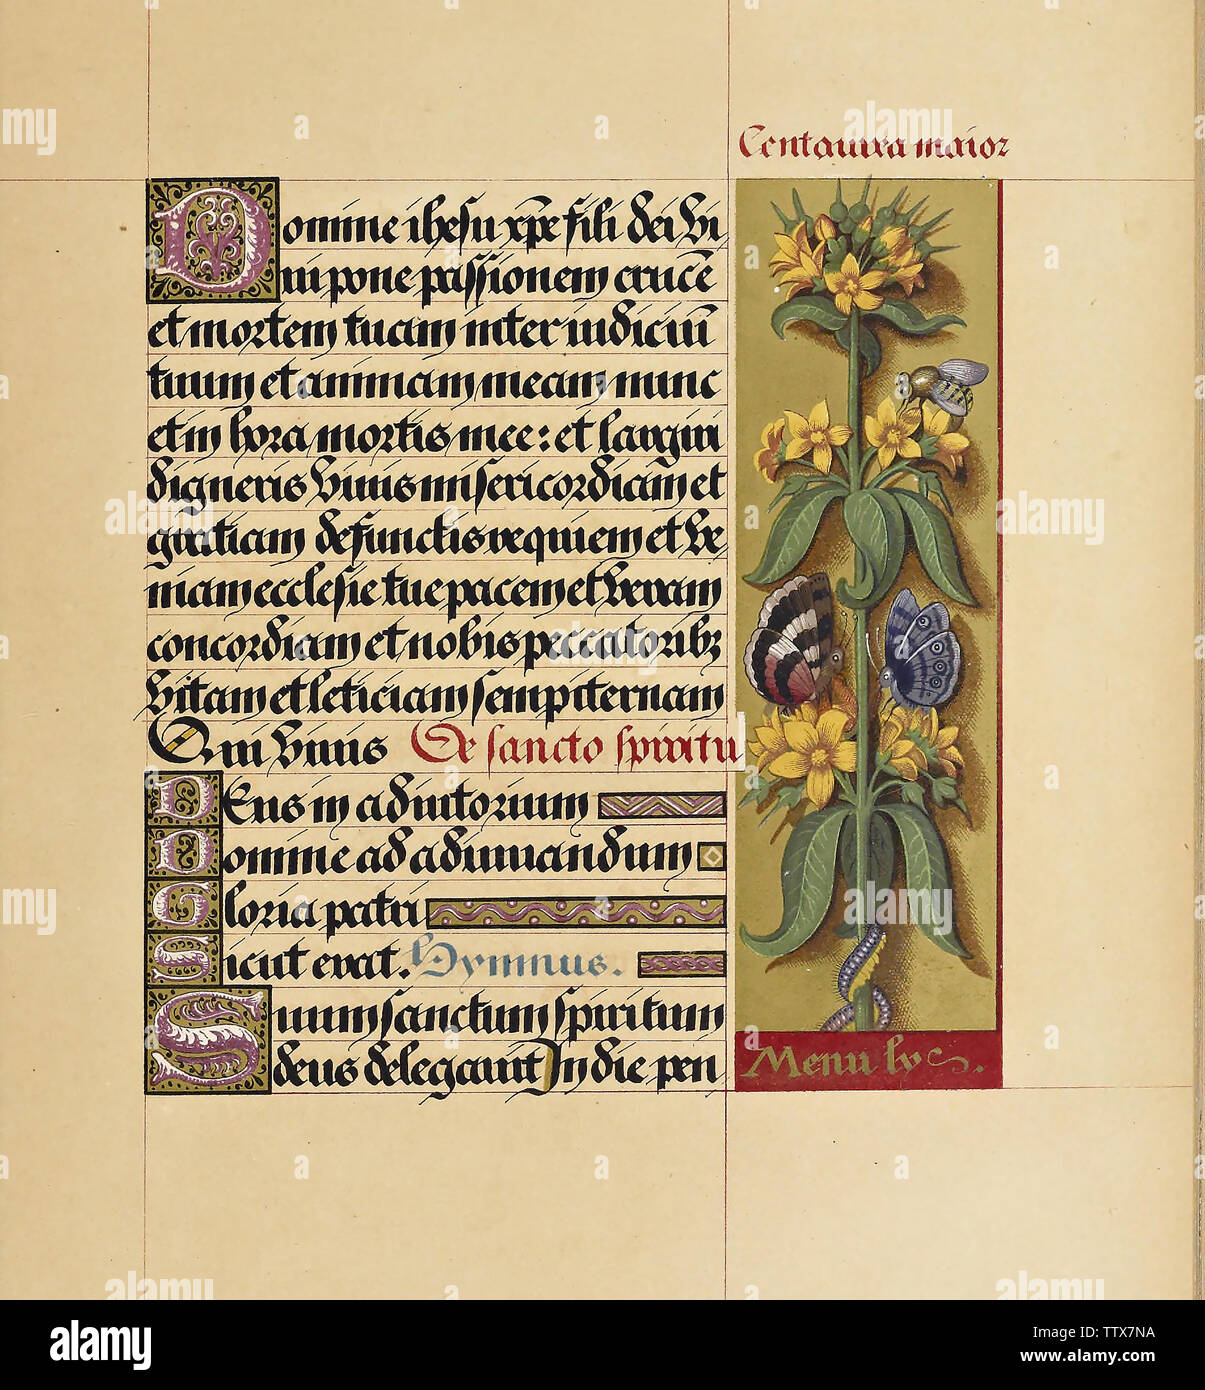 Centaurea maior
Domine ihesu xp̄e fili dei vi
vi pone passionem crucē
et mortem tuam inter iudiciū
tuum et animam meam nunc
et in hora mortis mee: et largiri
digneris vivis misericordiam̄ et
gratiam defunctis requiem et ve
niam ecclesie tue pacem et veram
concordiam et nobis peccatoribꝫ
vitam et leticiam sempiternam
Qui vivis De sancto spiritu
Deus in adiutorium
Domine ad adiuuandum
Gloria patri
Sicut erat. Hymnus.
Suum sanctum spiritum
deus delegavit In die pen
Menu lys.
alamy
Image ID: TTX7NA
www.alamy.com